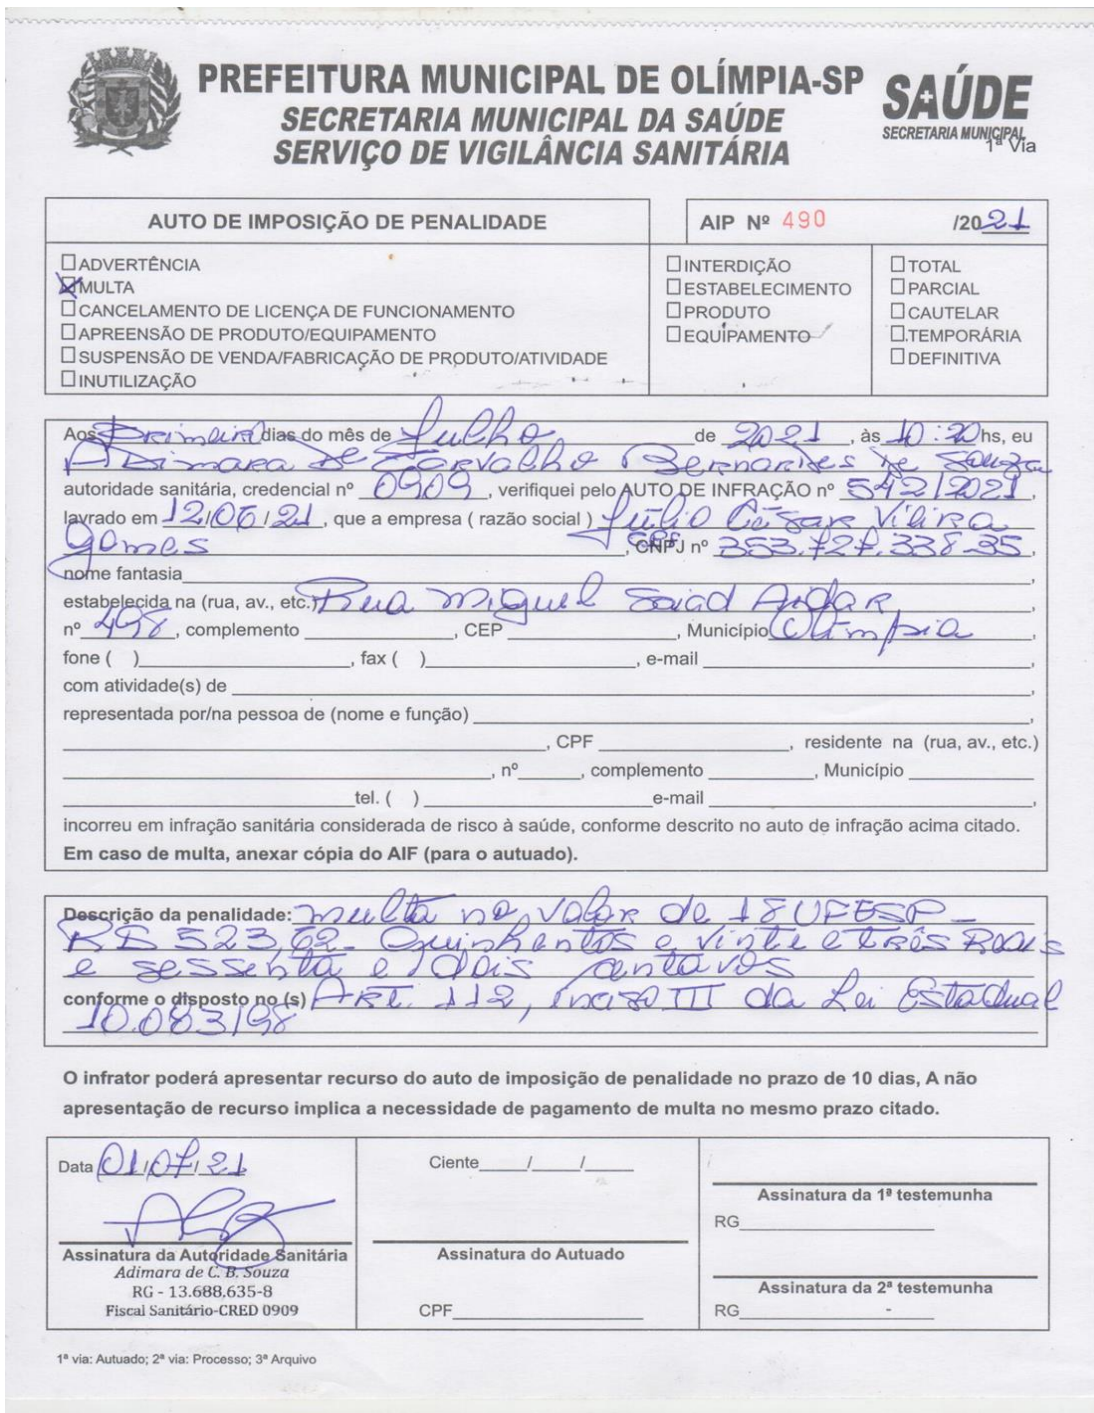 PREFEITURA MUNICIPAL DE OLÍMPIA-SP
SECRETARIA MUNICIPAL DA SAÚDE
SERVIÇO DE VIGILÂNCIA SANITÁRIA
SAÚDE
SECRETARIA MUNICIPAL
1ª Via
AUTO DE IMPOSIÇÃO DE PENALIDADE
AIP Nº 490 /2021
ADVERTÊNCIA
MULTA
CANCELAMENTO DE LICENÇA DE FUNCIONAMENTO
APREENSÃO DE PRODUTO/EQUIPAMENTO
SUSPENSÃO DE VENDA/FABRICAÇÃO DE PRODUTO/ATIVIDADE
INUTILIZAÇÃO
INTERDIÇÃO
ESTABELECIMENTO
PRODUTO
EQUIPAMENTO
TOTAL
PARCIAL
CAUTELAR
TEMPORÁRIA
DEFINITIVA
Aos Primeiro dias do mês de Julho de 2021, às 10:20 hs, eu
Adimara de Carvalho Bernardes de Souza
autoridade sanitária, credencial nº 0909, verifiquei pelo AUTO DE INFRAÇÃO nº 542/2021,
lavrado em 12/06/21, que a empresa ( razão social ) Júlio César Vieira
Gomes, CPF CNPJ nº 353.727.338-35,
nome fantasia ,
estabelecida na (rua, av., etc.) Rua Miguel Said Aidar,
nº 498, complemento , CEP , Município Olímpia,
fone ( ) , fax ( ) , e-mail ,
com atividade(s) de ,
representada por/na pessoa de (nome e função) ,
, CPF , residente na (rua, av., etc.)
, nº , complemento , Município
tel. ( ) e-mail ,
incorreu em infração sanitária considerada de risco à saúde, conforme descrito no auto de infração acima citado.
Em caso de multa, anexar cópia do AIF (para o autuado).
Descrição da penalidade: multa no valor de 18 UFESP -
R$ 523,62 - Quinhentos e vinte e três Reais
e sessenta e dois centavos
conforme o disposto no (s) Art. 112, inciso III da Lei Estadual
10.083/98
O infrator poderá apresentar recurso do auto de imposição de penalidade no prazo de 10 dias, A não
apresentação de recurso implica a necessidade de pagamento de multa no mesmo prazo citado.
Data 01/07/21
Assinatura da Autoridade Sanitária
Adimara de C. B. Souza
RG - 13.688.635-8
Fiscal Sanitário-CRED 0909
Ciente / /
Assinatura do Autuado
CPF
Assinatura da 1ª testemunha
RG
Assinatura da 2ª testemunha
RG -
1ª via: Autuado; 2ª via: Processo; 3ª Arquivo